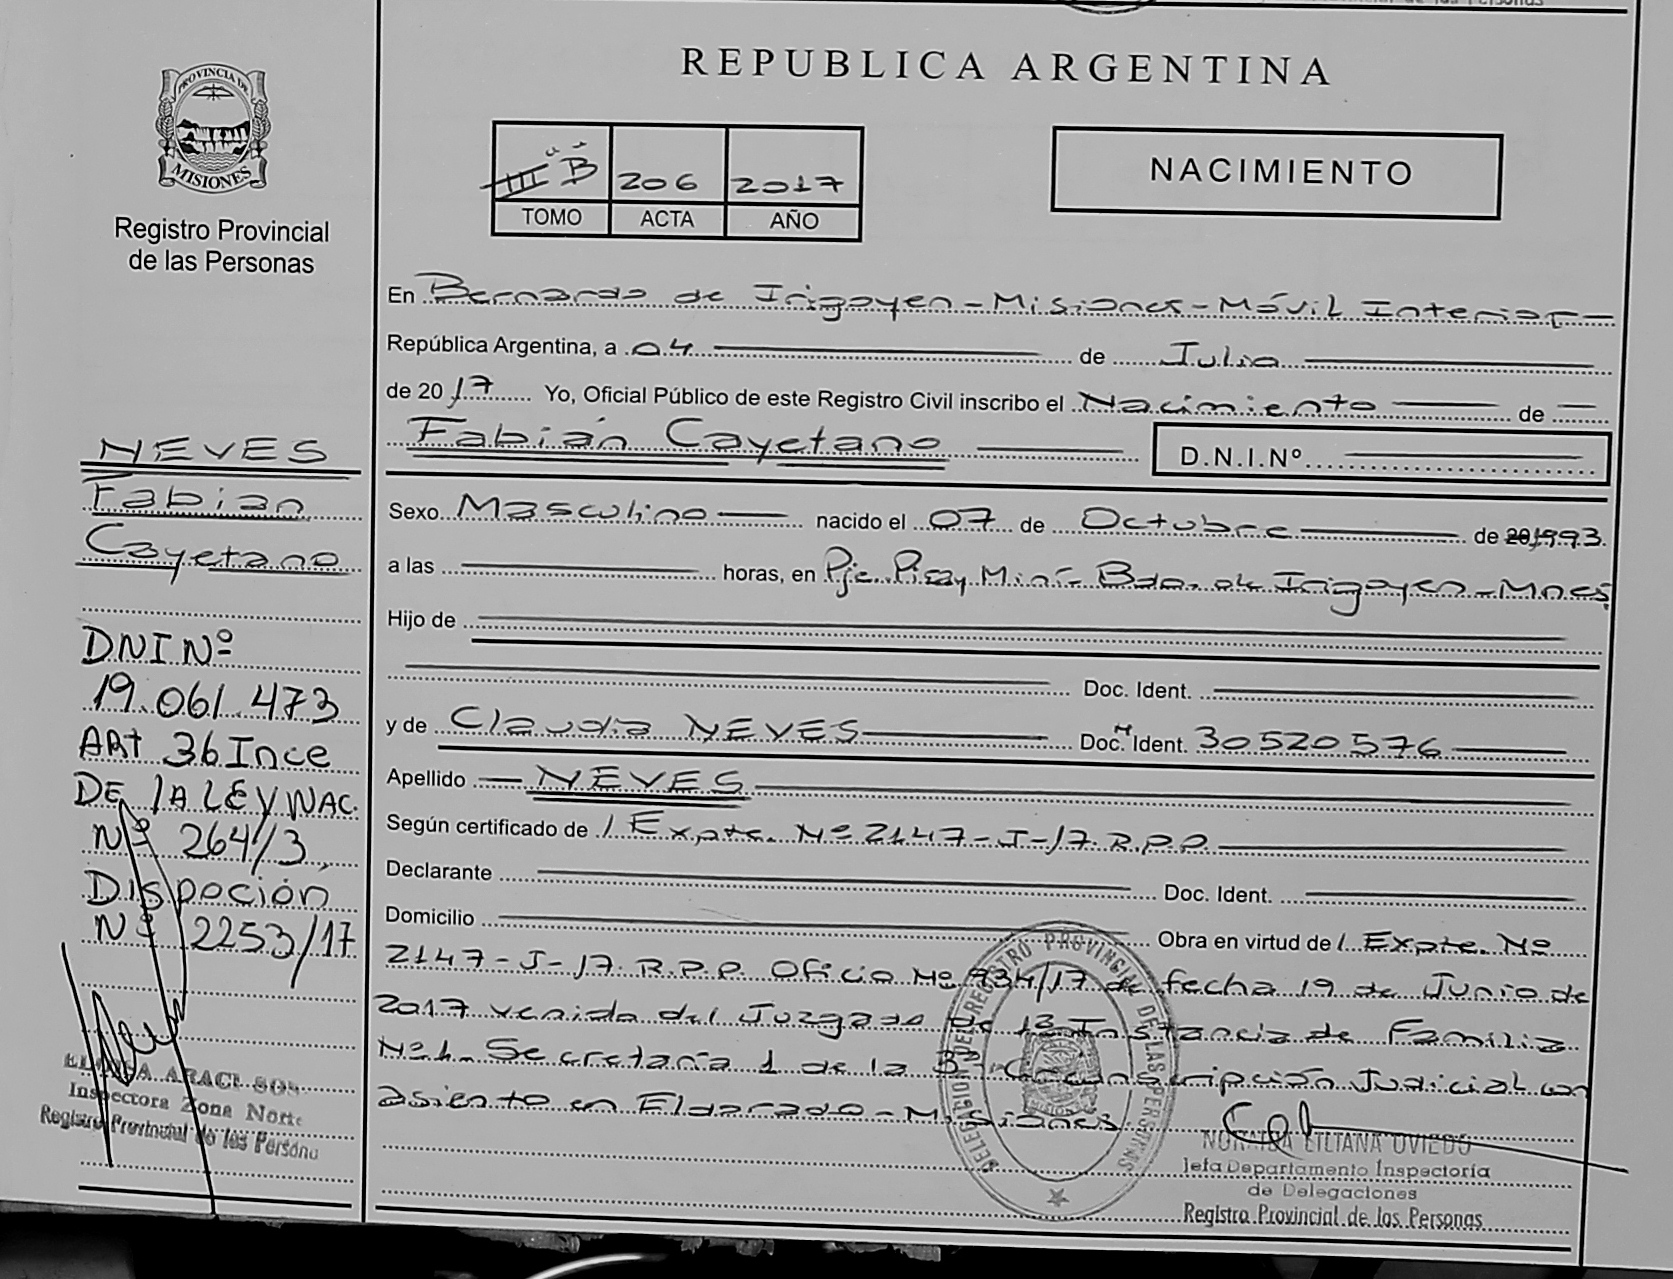 PROVINCIA DE
MISIONES
Registro Provincial
de las Personas
NEVES
Fabian
Cayetano
DNI Nº
19.061.473
ART 36 Ince
DE LA LEY NAC.
Nº 26413,
Dispoción
Nº 2253/17
ARACI SOS
Inspectora Zona Norte
Registro Provincial de las Persona
REPUBLICA ARGENTINA
III "B" 206 2017
TOMO ACTA AÑO
NACIMIENTO
En Bernardo de Irigoyen - Misiones - Móvil Interior -
República Argentina, a 04 de Julio
de 2017 Yo, Oficial Público de este Registro Civil inscribo el Nacimiento de
Fabián Cayetano D.N.I.Nº
Sexo Masculino nacido el 07 de Octubre de 20 1993.
a las horas, en Pje. Piray Miní - Bdo. de Irigoyen - Mnes
Hijo de
Doc. Ident.
y de Claudia NEVES Doc. Ident. 30520576
Apellido NEVES
Según certificado de / Expte. Nº 2147-J-17. R.P.P.
Declarante Doc. Ident.
Domicilio Obra en virtud de / Expte. Nº
2147-J-17. R.P.P. Oficio Nº 934/17 de fecha 19 de Junio de
2017 venido del Juzgado de 1ª Instancia de Familia
Nº 1. Secretaría 1 de la 3ª Circunscripción Judicial con
asiento en Eldorado - Misiones.
DELEGACION DEL REGISTRO PROVINCIAL DE LAS PERSONAS
LILIANA OVIEDO
Jefa Departamento Inspectoría
de Delegaciones
Registro Provincial de las Personas